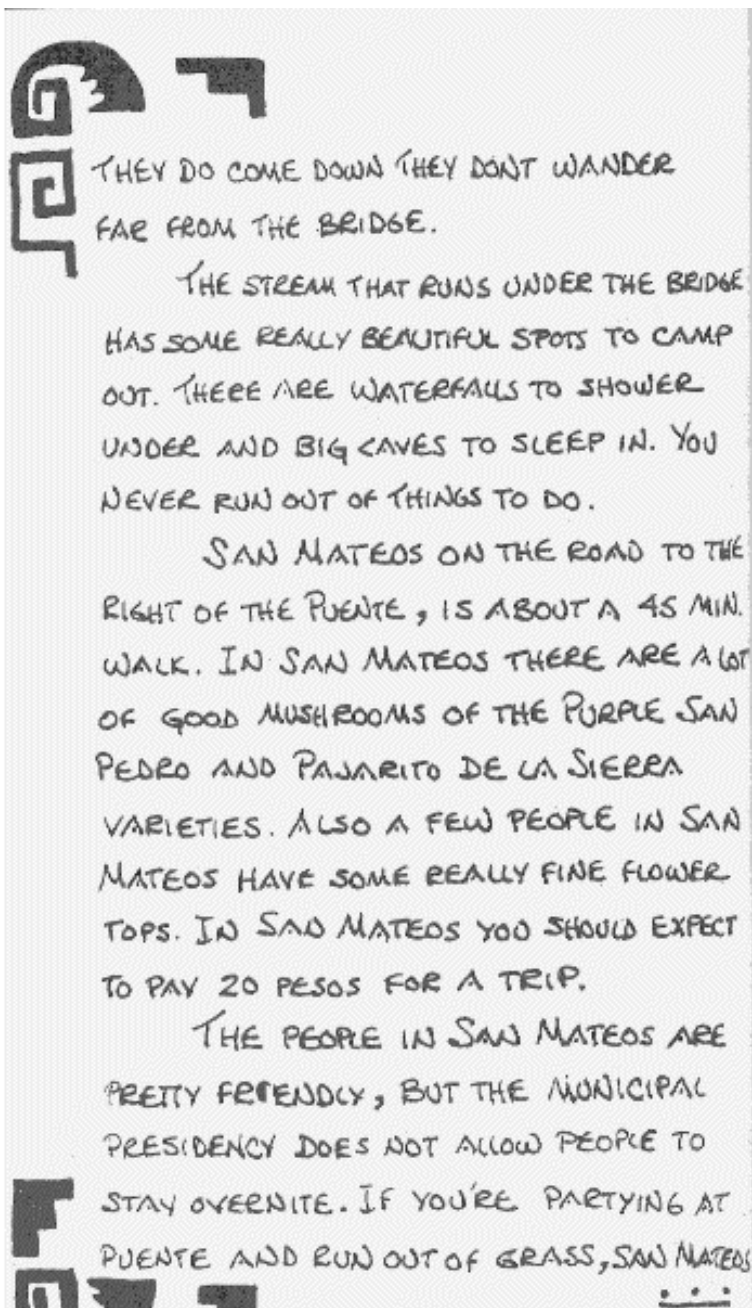 THEY DO COME DOWN THEY DONT WANDER
FAR FROM THE BRIDGE.
THE STREAM THAT RUNS UNDER THE BRIDGE
HAS SOME REALLY BEAUTIFUL SPOTS TO CAMP
OUT. THERE ARE WATERFALLS TO SHOWER
UNDER AND BIG CAVES TO SLEEP IN. YOU
NEVER RUN OUT OF THINGS TO DO.
SAN MATEOS ON THE ROAD TO THE
RIGHT OF THE PUENTE, IS ABOUT A 45 MIN.
WALK. IN SAN MATEOS THERE ARE A LOT
OF GOOD MUSHROOMS OF THE PURPLE SAN
PEDRO AND PAJARITO DE LA SIERRA
VARIETIES. ALSO A FEW PEOPLE IN SAN
MATEOS HAVE SOME REALLY FINE FLOWER
TOPS. IN SAN MATEOS YOU SHOULD EXPECT
TO PAY 20 PESOS FOR A TRIP.
THE PEOPLE IN SAN MATEOS ARE
PRETTY FRIENDLY, BUT THE MUNICIPAL
PRESIDENCY DOES NOT ALLOW PEOPLE TO
STAY OVERNITE. IF YOU'RE PARTYING AT
PUENTE AND RUN OUT OF GRASS, SAN MATEOS